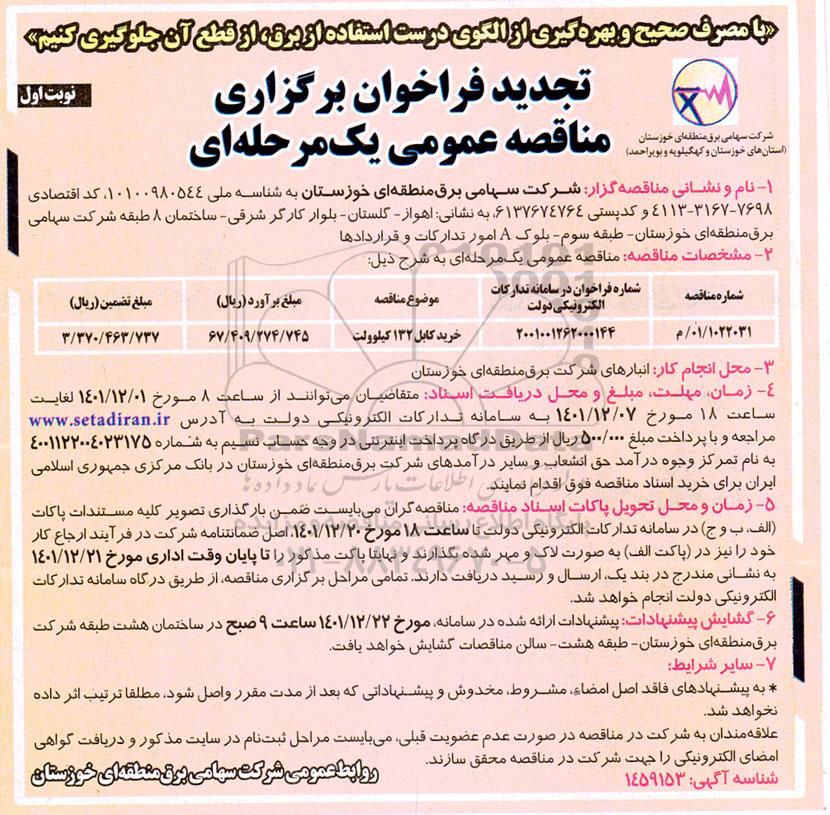 «با مصرف صحیح و بهره‌گیری از الگوی درست استفاده از برق، از قطع آن جلوگیری کنیم»
نوبت اول
تجدید فراخوان برگزاری
مناقصه عمومی یک‌مرحله‌ای
شرکت سهامی برق منطقه‌ای خوزستان
(استان‌های خوزستان و کهگیلویه و بویراحمد)
۱- نام و نشانی مناقصه‌گزار: شرکت سهامی برق منطقه‌ای خوزستان به شناسه ملی ۱۰۱۰۰۹۸۰۵۴۴، کد اقتصادی
۷۶۹۸-۳۱۶۷-۴۱۱۳ و کدپستی ۶۱۳۷۶۷۴۷۶۴، به نشانی: اهواز- گلستان- بلوار کارگر شرقی- ساختمان ۸ طبقه شرکت سهامی
برق منطقه‌ای خوزستان- طبقه سوم- بلوک A امور تدارکات و قراردادها
۲- مشخصات مناقصه: مناقصه عمومی یک‌مرحله‌ای به شرح ذیل:
شماره مناقصه | شماره فراخوان در سامانه تدارکات الکترونیکی دولت | موضوع مناقصه | مبلغ برآورد (ریال) | مبلغ تضمین (ریال)
۰۱/۱۰۲۲۰۳۱/م | ۲۰۰۱۰۰۱۲۶۲۰۰۰۱۴۴ | خرید کابل ۱۳۲ کیلوولت | ۶۷/۴۰۹/۲۷۴/۷۴۵ | ۳/۳۷۰/۴۶۳/۷۳۷
۳- محل انجام کار: انبارهای شرکت برق منطقه‌ای خوزستان
۴- زمان، مهلت، مبلغ و محل دریافت اسناد: متقاضیان می‌توانند از ساعت ۸ مورخ ۱۴۰۱/۱۲/۰۱ لغایت
ساعت ۱۸ مورخ ۱۴۰۱/۱۲/۰۷ به سامانه تدارکات الکترونیکی دولت به آدرس www.setadiran.ir
مراجعه و با پرداخت مبلغ ۵۰۰/۰۰۰ ریال از طریق درگاه پرداخت اینترنتی در وجه حساب سیم به شماره ۴۰۰۱۱۲۲۰۰۴۰۲۳۱۷۵
به نام تمرکز وجوه درآمد حق انشعاب و سایر درآمدهای شرکت برق منطقه‌ای خوزستان در بانک مرکزی جمهوری اسلامی
ایران برای خرید اسناد مناقصه فوق اقدام نمایند.
۵- زمان و محل تحویل پاکات اسناد مناقصه: مناقصه‌گران می‌بایست ضمن بارگذاری تصویر کلیه مستندات پاکات
(الف، ب و ج) در سامانه تدارکات الکترونیکی دولت تا ساعت ۱۸ مورخ ۱۴۰۱/۱۲/۲۰، اصل ضمانتنامه شرکت در فرآیند ارجاع کار
خود را نیز در (پاکت الف) به صورت لاک و مهر شده بگذارند و نهایتا پاکت مذکور را تا پایان وقت اداری مورخ ۱۴۰۱/۱۲/۲۱
به نشانی مندرج در بند یک، ارسال و رسید دریافت دارند. تمامی مراحل برگزاری مناقصه، از طریق درگاه سامانه تدارکات
الکترونیکی دولت انجام خواهد شد.
۶- گشایش پیشنهادات: پیشنهادات ارائه شده در سامانه، مورخ ۱۴۰۱/۱۲/۲۲ ساعت ۹ صبح در ساختمان هشت طبقه شرکت
برق منطقه‌ای خوزستان- طبقه هشت- سالن مناقصات گشایش خواهد یافت.
۷- سایر شرایط:
* به پیشنهادهای فاقد اصل امضاء، مشروط، مخدوش و پیشنهاداتی که بعد از مدت مقرر واصل شود، مطلقا ترتیب اثر داده
نخواهد شد.
علاقه‌مندان به شرکت در مناقصه در صورت عدم عضویت قبلی، می‌بایست مراحل ثبت‌نام در سایت مذکور و دریافت گواهی
امضای الکترونیکی را جهت شرکت در مناقصه محقق سازند.
شناسه آگهی: ۱۴۵۹۱۵۳
روابط عمومی شرکت سهامی برق منطقه‌ای خوزستان
ParsNamadData
پایگاه اطلاع رسانی مناقصه و مزایده
۰۲۱-۸۸۳۴۹۶۷۰-۵